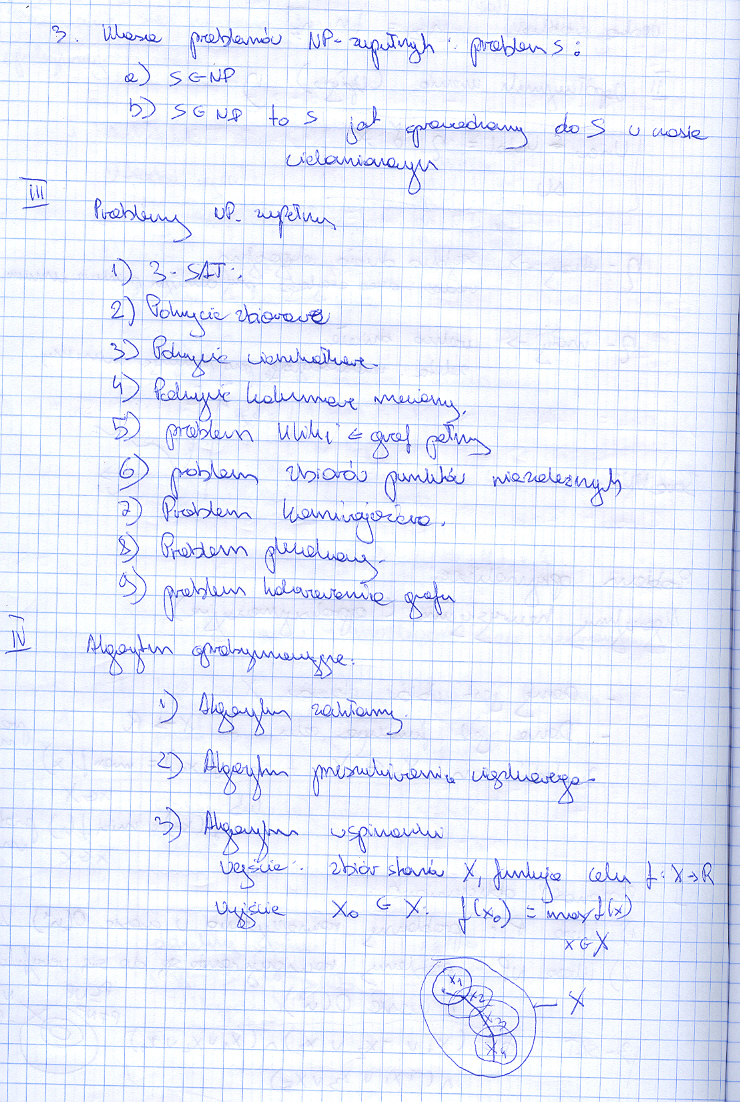 3. Klasa problemów NP-zupełnych: problem S:
a) S ∈ NP
b) S ∈ NP to S jest sprowadzany do S w czasie
wielomianowym
III
Problemy NP-zupełny
1) 3-SAT:
2) Pokrycie zbiorowe
3) Pokrycie wierzchołkowe
4) Pokrycie kolumnowe macierzy.
5) problem kliki ∈ graf pełny
6) problem zbiorów punktów niezależnych
7) Problem komiwojażera.
8) Problem plecakowy.
9) problem kolorowania grafu
IV
Algorytm aproksymacyjne:
1) Algorytm zachłanny.
2) Algorytm przeszukiwania wiązkowego
3) Algorytm wspinaczki
wejście: zbiór stanów X, funkcja celu f: X→R
wyjście X₀ ∈ X: f(x₀) = max f(x)
x ∈ X
X1
X2
X3
X4
X